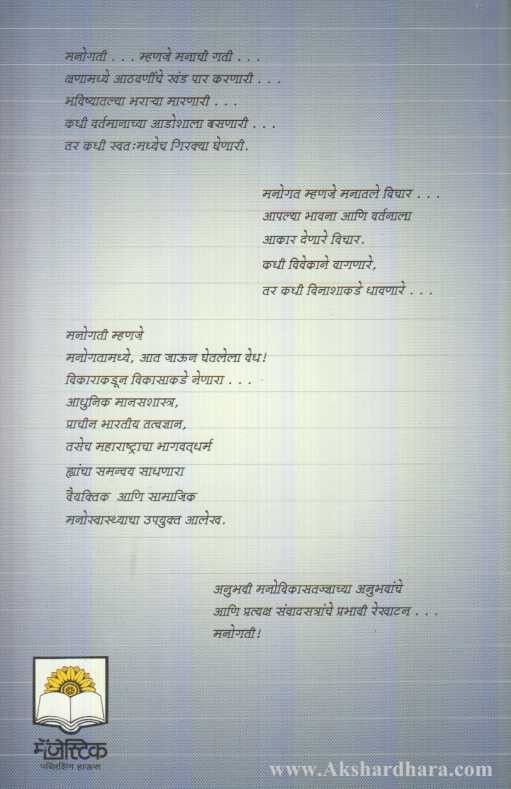 मनोगती . . . म्हणजे मनाची गती . . .
क्षणामध्ये आठवणींचे खंड पार करणारी . . .
भविष्यातल्या भराऱ्या मारणारी . . .
कधी वर्तमानाच्या आडोशाला बसणारी . . .
तर कधी स्वतःमध्येच गिरक्या घेणारी.
मनोगत म्हणजे मनातले विचार . . .
आपल्या भावना आणि वर्तनाला
आकार देणारे विचार.
कधी विवेकाने वागणारे,
तर कधी विनाशाकडे धावणारे . . .
मनोगती म्हणजे
मनोगतामध्ये, आत जाऊन घेतलेला वेध!
विकाराकडून विकासाकडे नेणारा . . .
आधुनिक मानसशास्त्र,
प्राचीन भारतीय तत्वज्ञान,
तसेच महाराष्ट्राचा भागवत्धर्म
ह्यांचा समन्वय साधणारा
वैयक्तिक आणि सामाजिक
मनोस्वास्थ्याचा उपयुक्त आलेख.
अनुभवी मनोविकासतज्ज्ञाच्या अनुभवांचे
आणि प्रत्यक्ष संवादसत्रांचे प्रभावी रेखाटन . . .
मनोगती!
मॅजेस्टिक
पब्लिशिंग हाऊस
www.Akshardhara.com